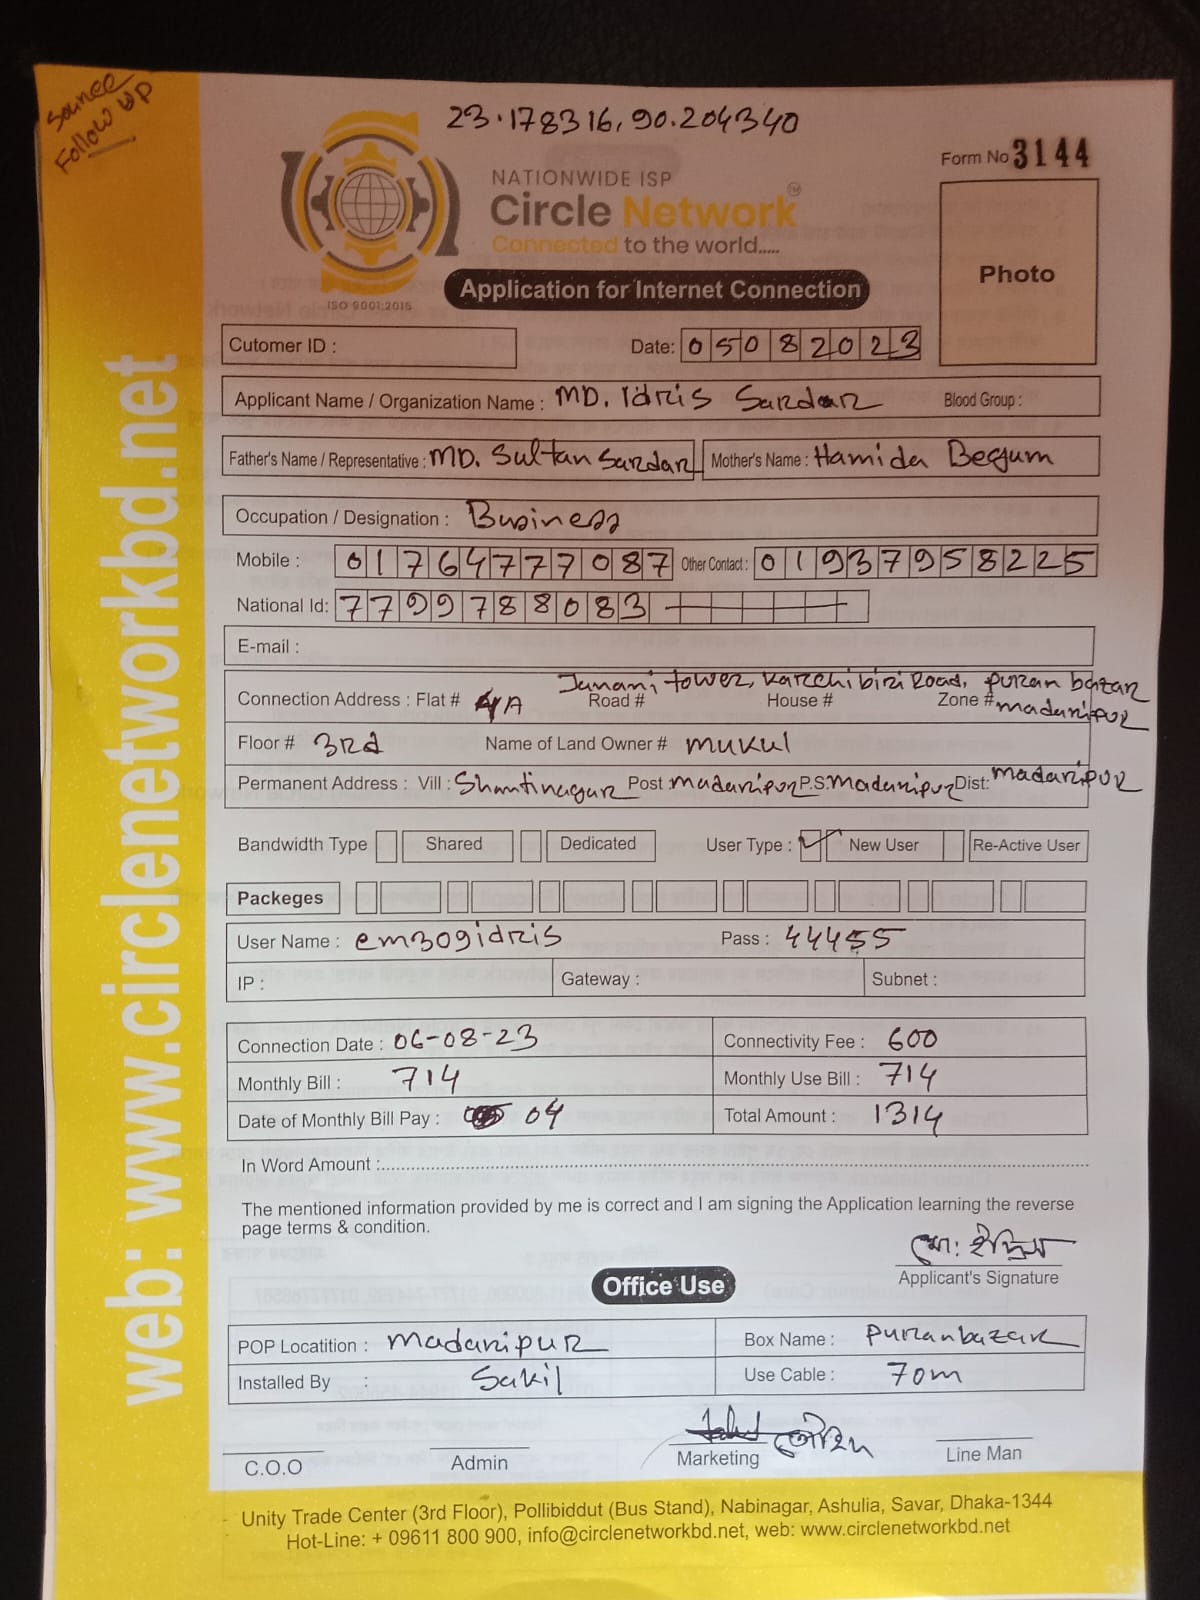 Source
Follow up
23.178316, 90.204340
Form No 3144
NATIONWIDE ISP
Circle Network TM
Connected to the world.....
ISO 9001:2015
Application for Internet Connection
Photo
Cutomer ID :
Date: 05082023
Applicant Name / Organization Name : MD. Idris Sardar Blood Group :
Father's Name / Representative : MD. Sultan Sardar Mother's Name : Hamida Begum
Occupation / Designation : Business
Mobile : 01764777087 Other Contact : 01937958225
National Id: 7799788083
E-mail :
Janani tower, Karchi biri Road, puran bazar
Connection Address : Flat # 4/A Road # House # Zone # madaripur
Floor # 3rd Name of Land Owner # mukul
Permanent Address : Vill : Shantinagar Post : madaripur P.S. madaripur Dist: madaripur
Bandwidth Type Shared Dedicated User Type : New User Re-Active User
Packeges
User Name : em309idris Pass : 44455
IP : Gateway : Subnet :
Connection Date : 06-08-23 Connectivity Fee : 600
Monthly Bill : 714 Monthly Use Bill : 714
Date of Monthly Bill Pay : 04 Total Amount : 1314
In Word Amount :
The mentioned information provided by me is correct and I am signing the Application learning the reverse
page terms & condition.
মো: ইদ্রিস
Applicant's Signature
Office Use
POP Locatition : Madaripur Box Name : Puranbazar
Installed By : Sakil Use Cable : 70m
C.O.O Admin Marketing Line Man
Unity Trade Center (3rd Floor), Pollibiddut (Bus Stand), Nabinagar, Ashulia, Savar, Dhaka-1344
Hot-Line: + 09611 800 900, info@circlenetworkbd.net, web: www.circlenetworkbd.net
web: www.circlenetworkbd.net